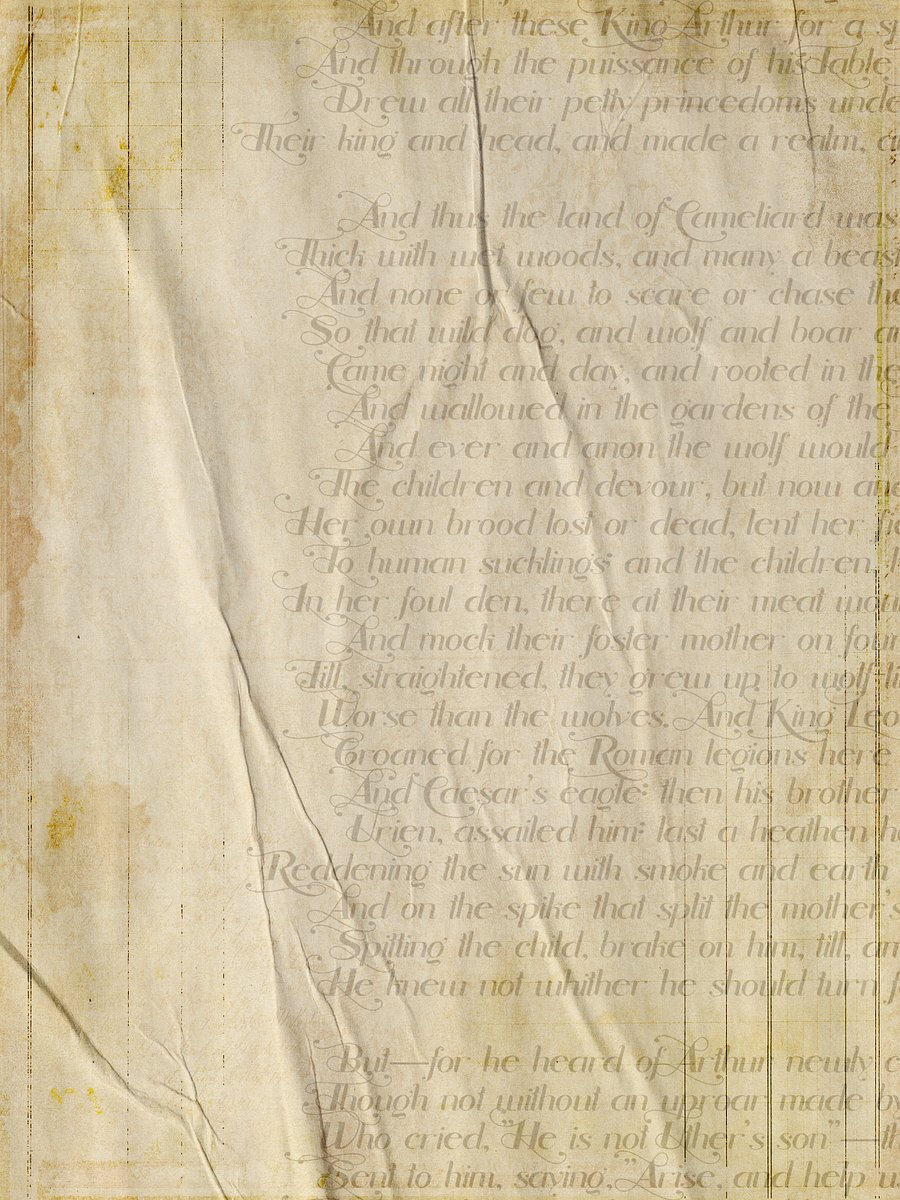 And after these King Arthur for a sp
And through the puissance of his Table
Drew all their petty princedoms unde
Their king and head, and made a realm, a
And thus the land of Cameliard was
Thick with wet woods, and many a beast
And none or few to scare or chase the
So that wild dog, and wolf and boar an
Came night and day, and rooted in the
And wallowed in the gardens of the
And ever and anon the wolf would
The children and devour, but now and
Her own brood lost or dead, lent her fie
To human sucklings and the children,
In her foul den, there at their meat wou
And mock their foster mother on four
Till, straightened, they grew up to wolf-li
Worse than the wolves. And King Leo
Groaned for the Roman legions here
And Caesar's eagle: then his brother
Urien, assailed him: last a heathen ho
Reddening the sun with smoke and earth
And on the spike that split the mother's
Spitting the child, brake on him, till, am
He knew not whither he should turn f
But—for he heard of Arthur newly c
Though not without an uproar made by
Who cried, "He is not Uther's son"—th
Sent to him, saying, "Arise, and help u